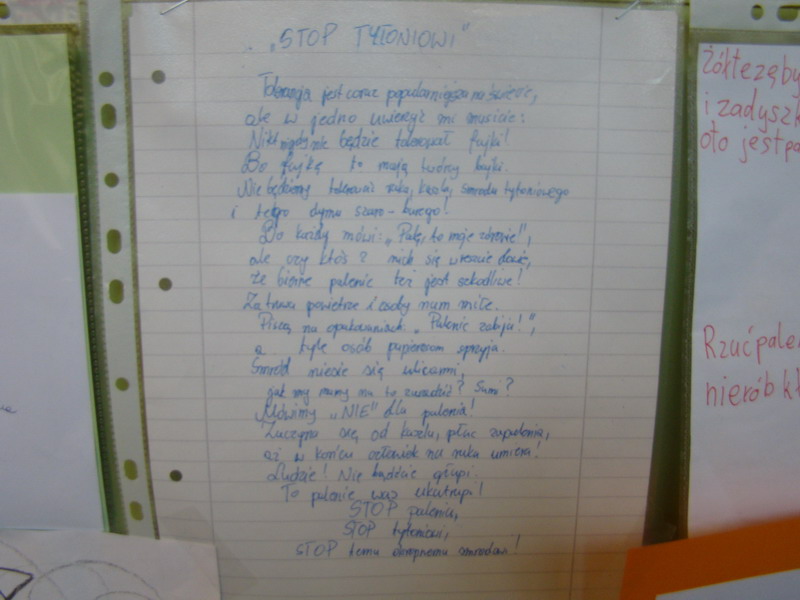 „STOP TYTONIOWI"
Tolerancja jest coraz popularniejsza na świecie,
ale w jedno uwierzyć mi musicie:
Nikt nigdy nie będzie tolerował fajki!
Bo fajkę to mają twórcy bajki.
Nie będziemy tolerować raka, kaszlu, smrodu tytoniowego
i tego dymu szaro-burego!
Bo każdy mówi: „Palę, to moje zdrowie!",
ale czy ktoś z nich się wreszcie dowie,
że bierne palenie też jest szkodliwe!
Zatruwa powietrze i osoby nam miłe.
Piszą na opakowaniach „Palenie zabija!",
a tyle osób papierosom sprzyja.
Smród niesie się ulicami,
jak my mamy na to zaradzić? Sami?
Mówimy „NIE" dla palenia!
Zaczyna się od kaszlu, płuc zapalenia,
aż w końcu człowiek na raka umiera!
Ludzie! Nie bądźcie głupi.
To palenie was ukatrupi!
STOP paleniu,
STOP tytoniowi,
STOP temu okropnemu smrodowi!
Żółte zęby
i zadyszk
oto jest pa
Rzuć pale
nie rób kł